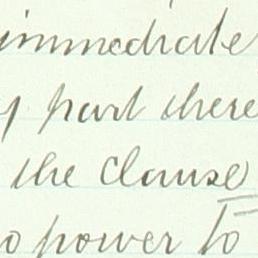 immediate
part there
the Clause
power to